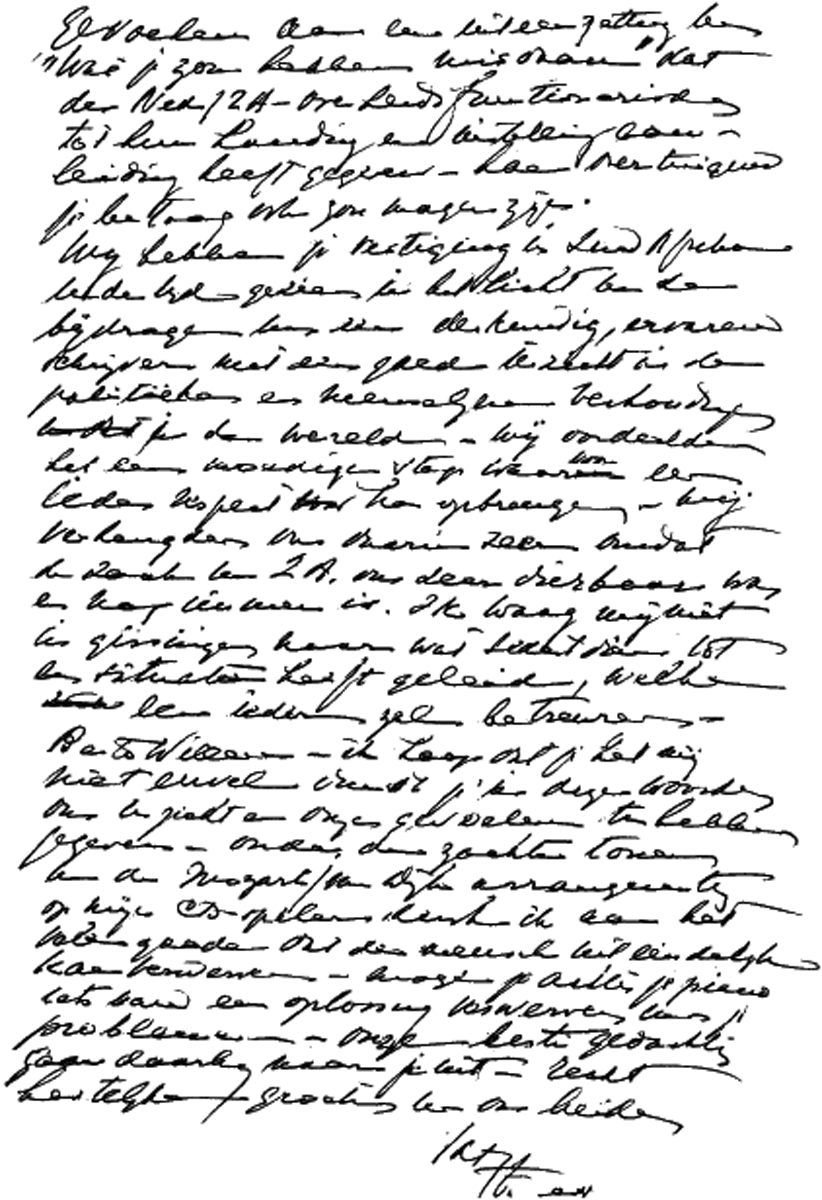 behoefte aan een uiteenzetting van
"Wat je zou hebben misdaan" dat
de Ned/ZA-overheidsfunctionarissen
tot hun houding en instelling aan-
leiding heeft gegeven - hoe overtuigend
je betoog ook zou mogen zijn.
Wij hebben je vestiging in Zuid Afrika
destijds gezien in het licht van de
bijdragen van een deskundig, ervaren
schrijver met een goed inzicht in de
politieke en menselijke verhoudingen
in de wereld - wij oordeelden
het een moedige stap waarvoor een
ieder respect kan opbrengen - wij
verheugden ons daarin zeer omdat
de zaak van ZA. ons zeer dierbaar was
en nog immer is. Ik waag mij niet
in gissingen naar wat sindsdien tot
een situatie heeft geleid, welke
een ieder zal betreuren -
Beste Willem - ik hoop dat je het mij
niet euvel duidt je in deze woorden
ons inzicht en onze gevoelens te hebben
gegeven - onder de zachte tonen
van de Mozart/van Dijk arrangementen
op mijn CD-speler denk ik aan het
vele goede dat de mensch uiteindelijk
kan verwerven - moge je achter je piano
iets van een oplossing verwerven van je
problemen - onze beste gedachten
gaan daarbij naar je uit - zeer
hartelijke groeten van ons beiden